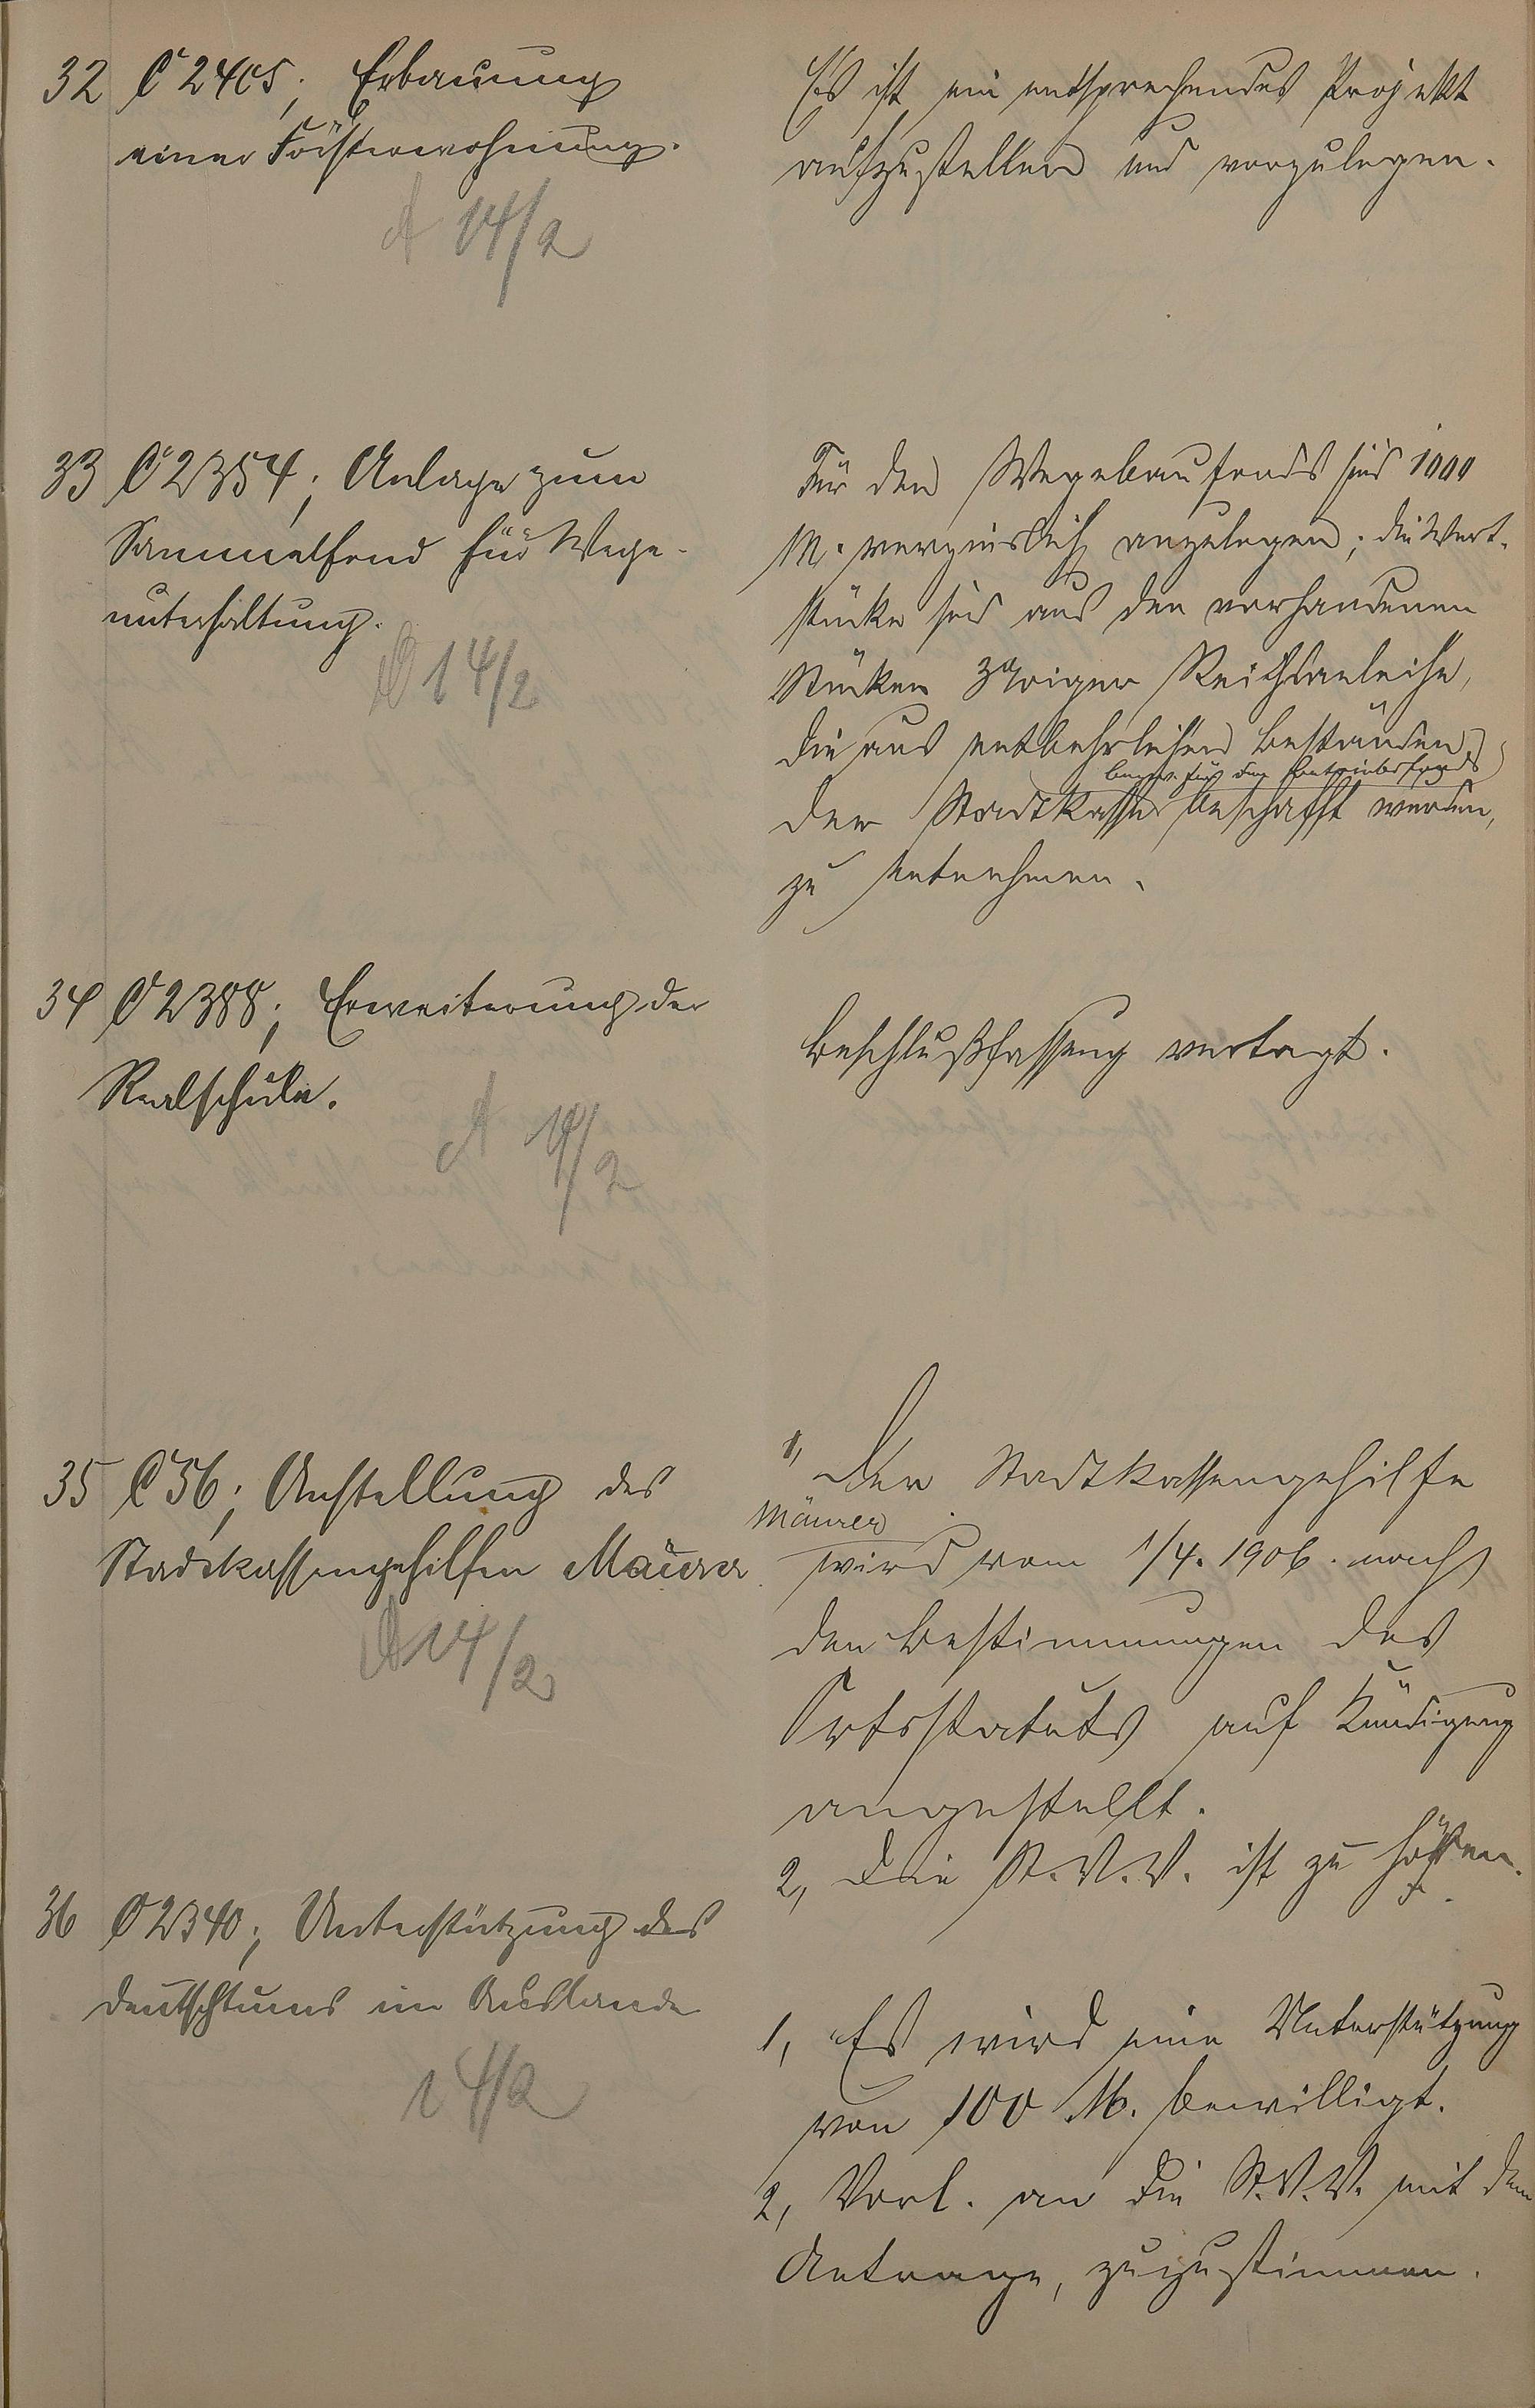 32 C 2405; Erbauung
einer Försterwohnung.
14/2
Es ist ein entsprechendes Projekt
aufzustellen und vorzulegen.
33 C 2354; Anlage zum
Sammelfond für Wege-
unterhaltung.
14/2
Für den Wegebaufonds sind 1000
M. verzinslich anzulegen; die Wert-
stücke sind aus den vorhandenen
Stücken 3%iger Reichsanleihe,
die aus entbehrlichen Beständen
bezw. für den Betriebsfonds
der Stadtkasse beschafft werden,
zu entnehmen.
34 C 2388; Erweiterung der
Realschule.
14/2
Beschlußfassung vertagt.
35 C 56; Anstellung des
Stadtkassengehilfen Mäurer.
14/2
1, Der Stadtkassengehilfe
Mäurer
wird vom 1/4. 1906. nach
den Bestimmungen des
Ortsstatuts auf Kündigung
angestellt.
2, Die St.V.V. ist zu hören.
36 C 2340; Unterstützung des
Deutschtums im Auslande
14/2
1, Es wird eine Unterstützung
von 100 M. bewilligt.
2, Vorl. an die St.V.V. mit dem
Antrage, zuzustimmen.